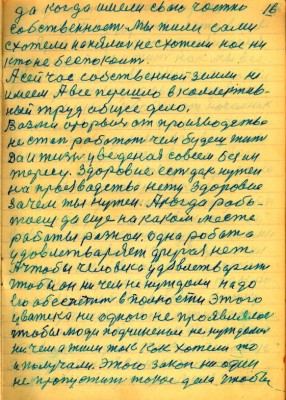 16
да когда имели свою частно
собственност мы жили сами
схотели пойдем не схотели нас ни
кто не беспокоит.
А сей час собственной земли не
имеем. А все перешло в коллектив-
ный труд общее дело.
Возми оторвись от производства
не стал работат чем будеш жить
Да и жизнь уведеная совсем без ин
тересу. Здоровие ест дак нужен
на производстве нету здоровие
зачем ты нужен. А когда рабо-
таеш да еще на каком месте
работы разной. одна робота
удовлетваряет другая нет
А чтобы человека удовлетворить
чтобы он ни чем не нуждался надо
его обеспечит в полности этого
у нас ни одного не проявлялос
чтобы люди подчиненые не нуждалис
ни чем а жили так как хотели то
и получали. Этого закон на один
не пропустит такое дела чтобы